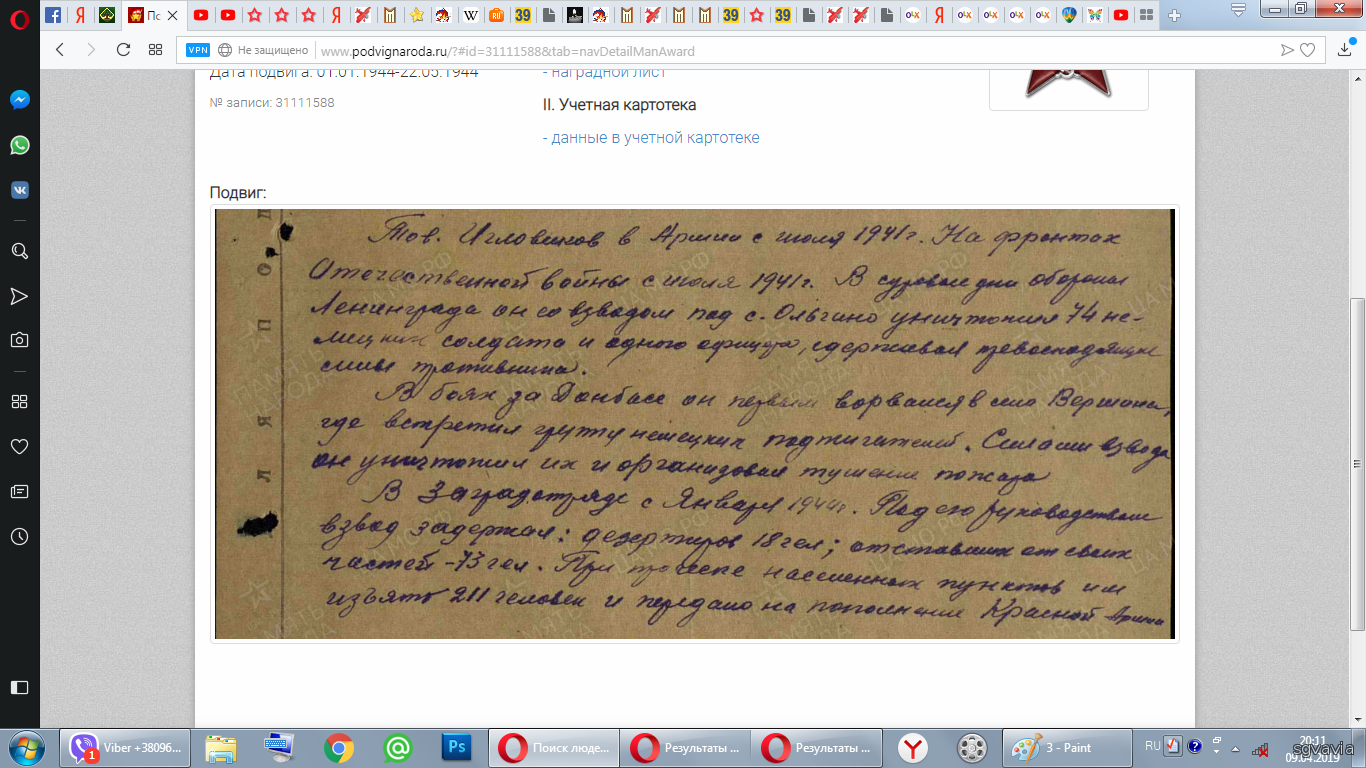 Пс
39
39
39
VPN
Не защищено
www.podvignaroda.ru/?#id=31111588&tab=navDetailManAward
Дата подвига: 01.01.1944-22.05.1944
- наградной лист
№ записи: 31111588
II. Учетная картотека
- данные в учетной картотеке
Подвиг:
Тов. Игловиков в Армии с июля 1941 г. На фронтах
Отечественной войны с июля 1941 г. В суровые дни обороны
Ленинграда он со взводом под с. Ольгино уничтожил 74 не-
мецких солдата и одного офицера, сдерживая превосходящие
силы противника.
В боях за Донбасс он первым ворвался в село
где встретил группу немецких поджигателей. Силами взвода
он уничтожил их и организовал тушение пожара
В Заградотряде с Января 1944 г. Под его руководством
взвод задержал: дезертиров 18 чел; отставших от своих
частей - 73 чел. При прочесе населенных пунктов им
изъято 211 человек и передано на пополнение Красной Армии
Д Л Я П О Д
ПАМЯТЬ НАРОДА
ЦА МО РФ
1
Viber +38096...
Ps
Поиск люде...
Результаты ...
Результаты ...
3 - Paint
RU
20:11
09.04.2019
sgvavia